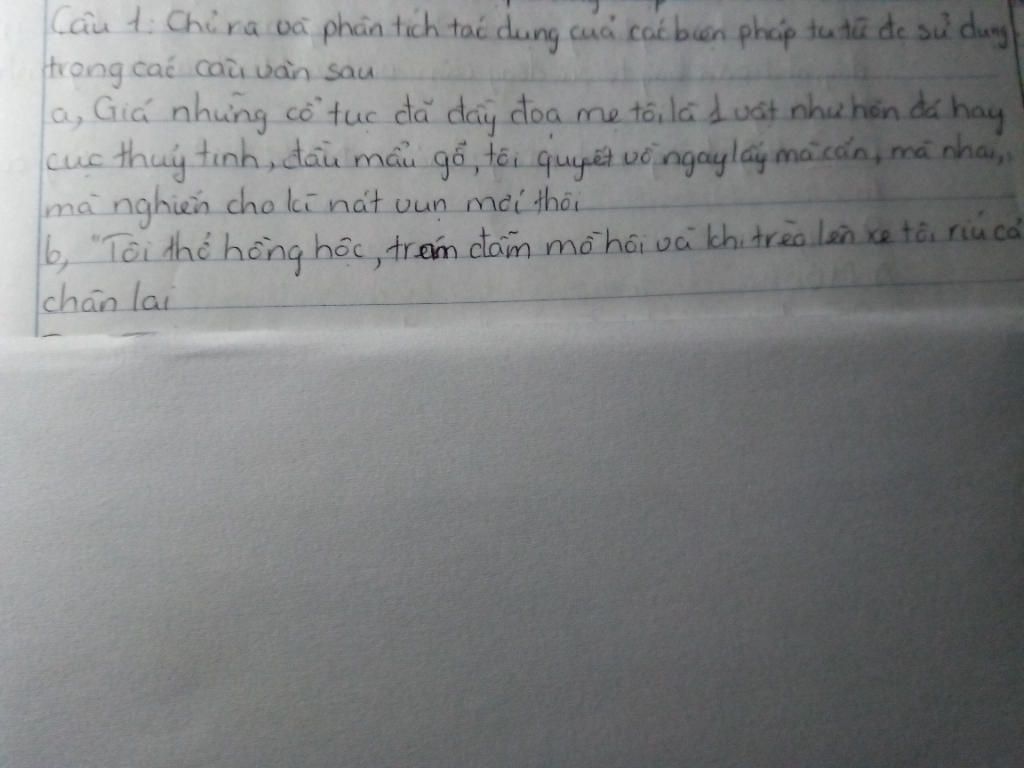 Câu 1: Chỉ ra và phân tích tác dụng của các biện pháp tu từ đc sử dụng
trong các câu văn sau
a, Giá những cổ tục đã đày đoạ mẹ tôi là 1 vật như hòn đá hay
cục thuỷ tinh, đầu mẩu gỗ, tôi quyết vồ ngay lấy mà cắn, mà nhai,
mà nghiến cho kì nát vụn mới thôi
b, "Tôi thở hồng hộc, trán đẫm mồ hôi và khi trèo lên xe tôi ríu cả
chân lại